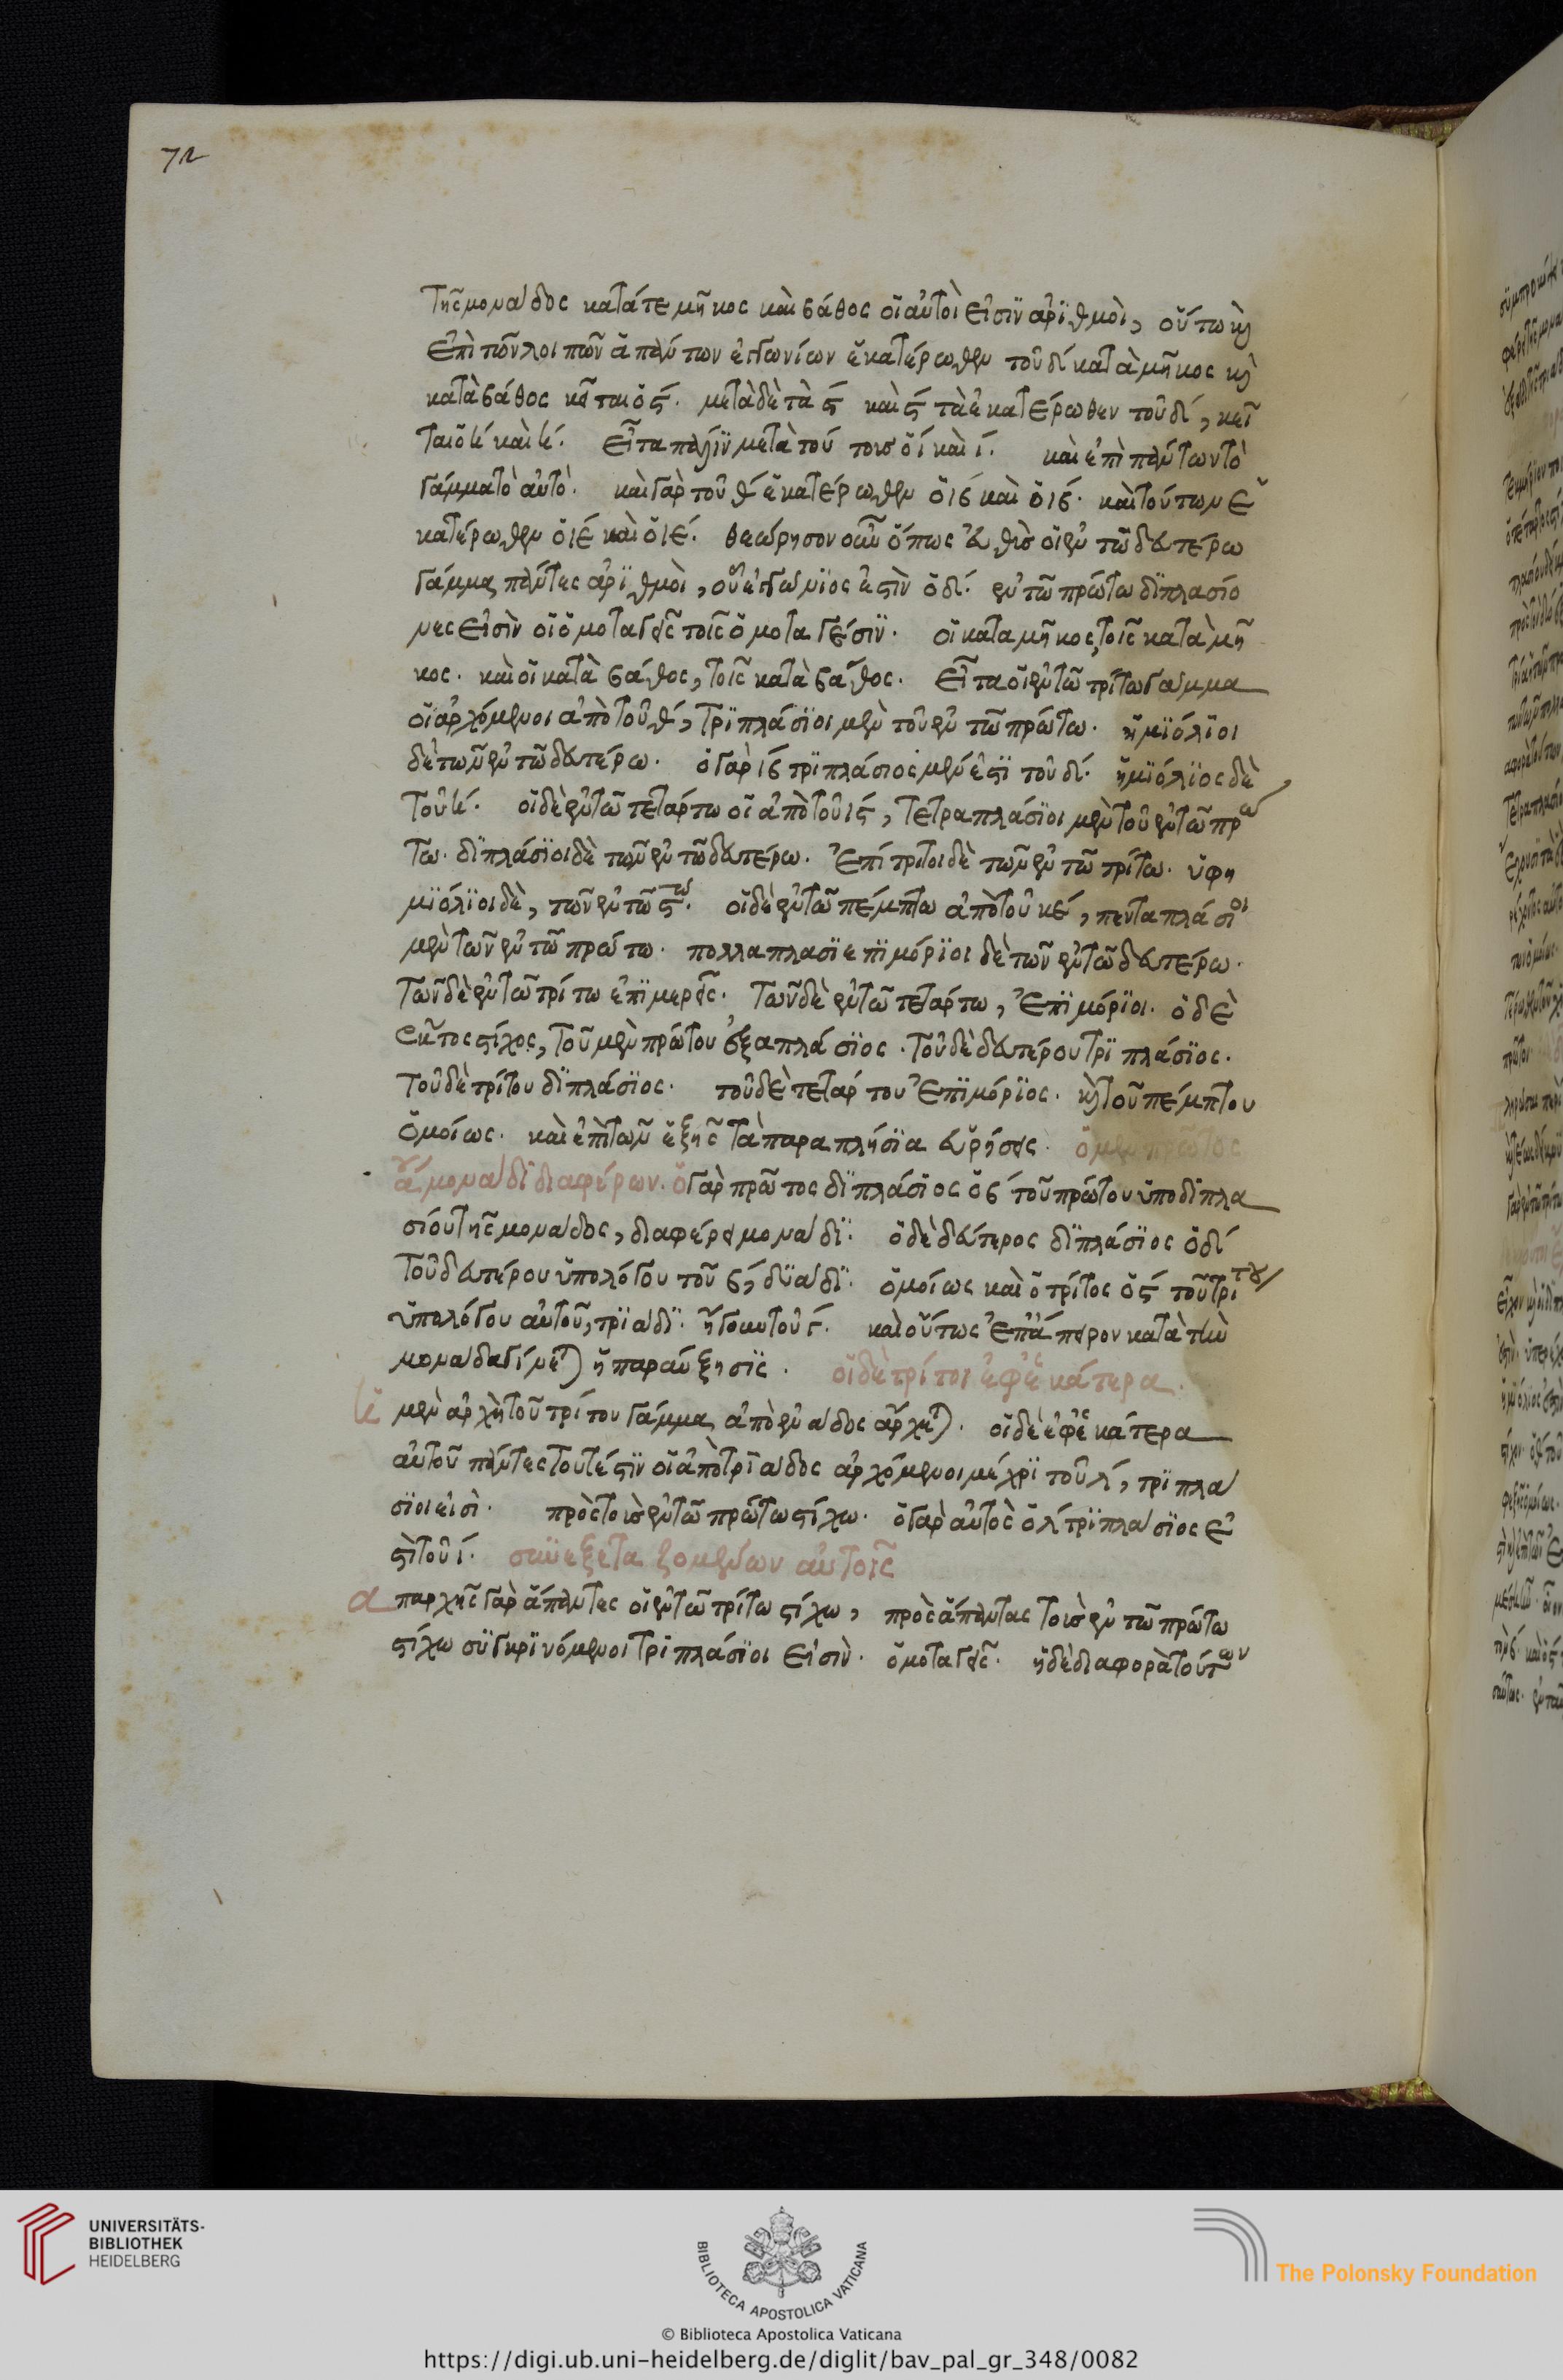 72
τῆς μονάδος κατά τε μῆκος καὶ βάθος οἱ αὐτοὶ εἰσὶν ἀριθμοὶ, οὕτω κ(αὶ)
ἐπὶ τῶν λοιπῶν ἁπάντων ἐγγωνίων ἑκατέρωθεν τοῦ δ́ κατὰ μῆκος κ(αὶ)
κατὰ βάθος κεῖται ὁ ϛ. μετὰ δὲ τὰ ϛ καὶ ϛ τὰ ἑκατέρωθεν τοῦ δ́, κεῖ
ται ὁ ή καὶ ή. εἶτα πάλιν μετὰ τούτους ὁ ί καὶ ί. καὶ ἐπὶ πάντων τὸ
γάμμα τὸ αὐτό. καὶ γὰρ τοῦ θ́ ἑκατέρωθεν ὁ ιβ́ καὶ ὁ ιβ́. καὶ τούτων ἑ
κατέρωθεν ὁ ιέ καὶ ὁ ιέ. θεώρησον οὖν ὅπως εὐθὺς οἱ ἐν τῶ δευτέρω
γάμμα πάντες ἀριθμοὶ, οὗ ἐγγώνιος ἐστὶν ὁ δ́. ἐν τῶ πρώτω διπλασίο
νες εἰσὶν οἱ ὁμοταγεῖς τοῖς ὁμοταγέσιν. οἱ κατα μῆκος, τοῖς κατὰ μῆ
κος. καὶ οἱ κατὰ βάθος, τοῖς κατὰ βάθος. εἶτα οἱ ἐν τῶ τρίτω γάμμα
οἱ ἀρχόμενοι ἀπὸ τοῦ θ́, τριπλάσιοι μὲν τοῦ ἐν τῶ πρώτω. ἡμιόλιοι
δὲ τῶν ἐν τῶ δευτέρω. ὁ γὰρ ιβ τριπλάσιος μέν ἐστι τοῦ δ́. ἡμιόλιος δὲ
τοῦ ή. οἱ δὲ ἐν τῶ τετάρτω οἱ ἀπὸ τοῦ ιϛ, τετραπλάσιοι μὲν τοῦ ἐν τῶ πρώ
τω. διπλάσιοι δὲ τῶν ἐν τῶ δευτέρω. ἐπίτριτοι δὲ τῶν ἐν τῶ τρίτω. ὑφη
μιόλιοι δὲ, τῶν ἐν τῶ ϛω. οἱ δὲ ἐν τῶ πέμπτω ἀπὸ τοῦ κέ, πενταπλάσιοι
μὲν τῶν ἐν τῶ πρώτω. πολλαπλασιεπιμόριοι δὲ τῶν ἐν τῶ δευτέρω.
τῶν δὲ ἐν τῶ τρίτω ἐπιμερεῖς. τῶν δὲ ἐν τῶ τετάρτω, ἐπιμόριοι. ὁ δὲ
ἕκτος στίχος, τοῦ μὲν πρώτου ἑξαπλάσιος. τοῦ δὲ δευτέρου τριπλάσιος.
τοῦ δὲ τρίτου διπλάσιος. τοῦ δὲ τετάρτου ἐπιμόριος. κ(αὶ) τοῦ πέμπτου
ὁμοίως. καὶ ἐπὶ τῶν ἑξῆς τὰ παραπλήσια εὑρήσεις. ὁ μεν πρῶτος
ἅ μονάδι διαφέρων. ὁ γὰρ πρῶτος διπλάσιος ὁ β́ τοῦ πρώτου ὑποδιπλα
σίου τῆς μονάδος, διαφέρει μονάδι. ὁ δὲ δεύτερος διπλάσιος ὁ δ́
τοῦ δευτέρου ὑπολόγου τοῦ β́, δυάδι. ὁμοίως καὶ ὁ τρίτος ὁ ϛ τοῦ τρίτου
ὑπολόγου αὐτοῦ, τριάδι. ἤγουν τοῦ γ́. καὶ οὕτως ἐπ' ἄπειρον κατὰ τὴν
μονάδα γίνεται ἡ παραύξησις. οἱ δὲ τρίτοι ἐφ' ἑκάτερα.
ἡ μὲν ἀρχὴ τοῦ τρίτου γάμμα ἀπὸ ἐνάδος ἄρχεται. οἱ δὲ ἐφ' ἑκάτερα
αὐτοῦ πάντες τουτέστιν οἱ ἀπὸ τριάδος ἀρχόμενοι μέχρι τοῦ λ́, τριπλά
σιοι εἰσὶ. πρὸς τοὺς ἐν τῶ πρώτω στίχω. ὁ γὰρ αὐτὸς ὁ λ́ τριπλάσιος ἐ
στὶ τοῦ ί. συνεξεταζομένων αὐτοῖς
ἀπαρχῆς γὰρ ἅπαντες οἱ ἐν τῶ τρίτω στίχω, πρὸς ἅπαντας τοὺς ἐν τῶ πρώτω
στίχω συγκρινόμενοι τριπλάσιοι εἰσὶν. ὁμοταγεῖς. ἡ δὲ διαφορὰ τούτων
UNIVERSITÄTS-
BIBLIOTHEK
HEIDELBERG
BIBLIOTECA APOSTOLICA VATICANA
The Polonsky Foundation
© Biblioteca Apostolica Vaticana
https://digi.ub.uni-heidelberg.de/diglit/bav_pal_gr_348/0082